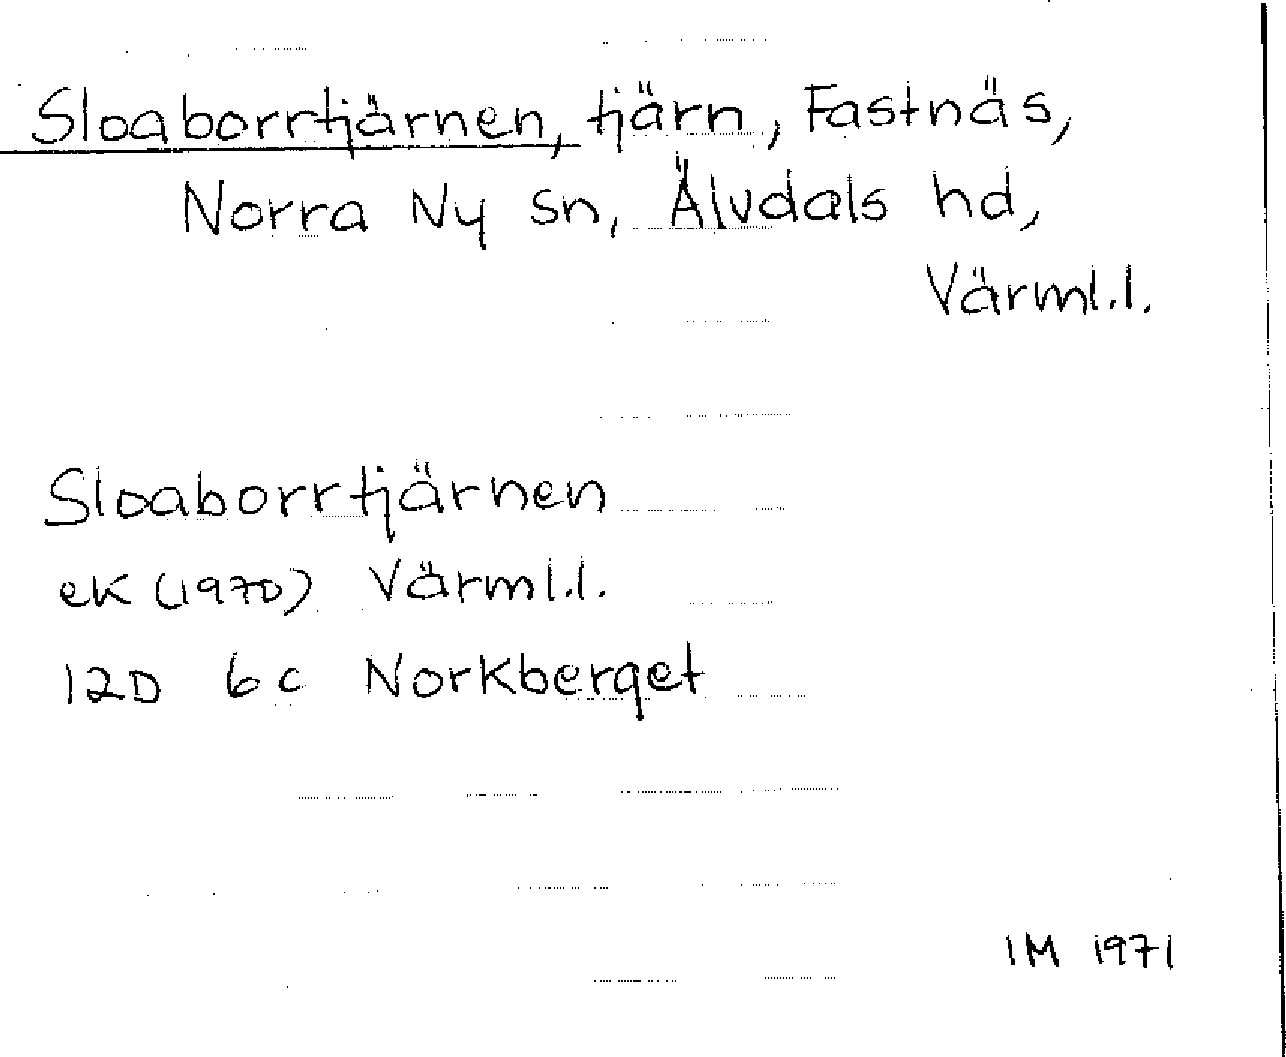 Sloaborrtjärnen, tjärn, Fastnäs,
Norra Ny sn, Älvdals hd,
Värml.l.
Sloaborrtjärnen
ek (1970) Värml.l.
12D 6c Norkberget
IM 1971